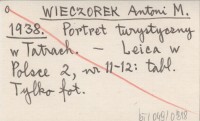 WIECZOREK Antoni M.
1938. Portret turystyczny
w Tatrach. – Leica w
Polsce 2, nr 11-12: tabl.
Tylko fot.